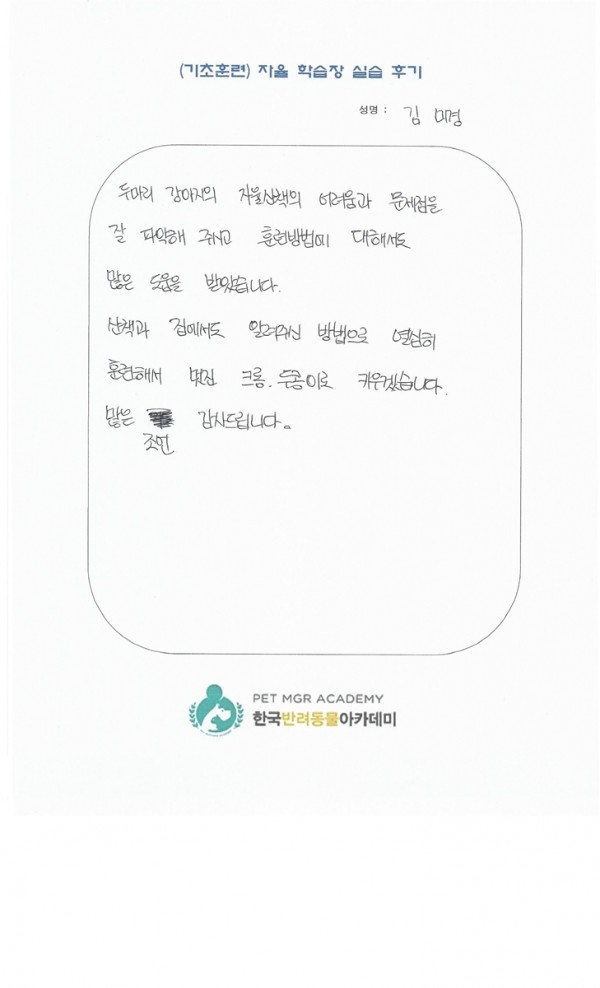 (기초훈련) 자율 학습장 실습 후기
성명 : 김 미경
두마리 강아지의 자율산책의 어려움과 문제점을
잘 파악해 주시고 훈련방법에 대해서도
많은 도움을 받았습니다.
산책과 집에서도 알려주신 방법으로 열심히
훈련해서 멋진 크롱. 두콩이로 키우겠습니다.
많은 감사드립니다.
조언
PET MGR ACADEMY
한국반려동물아카데미